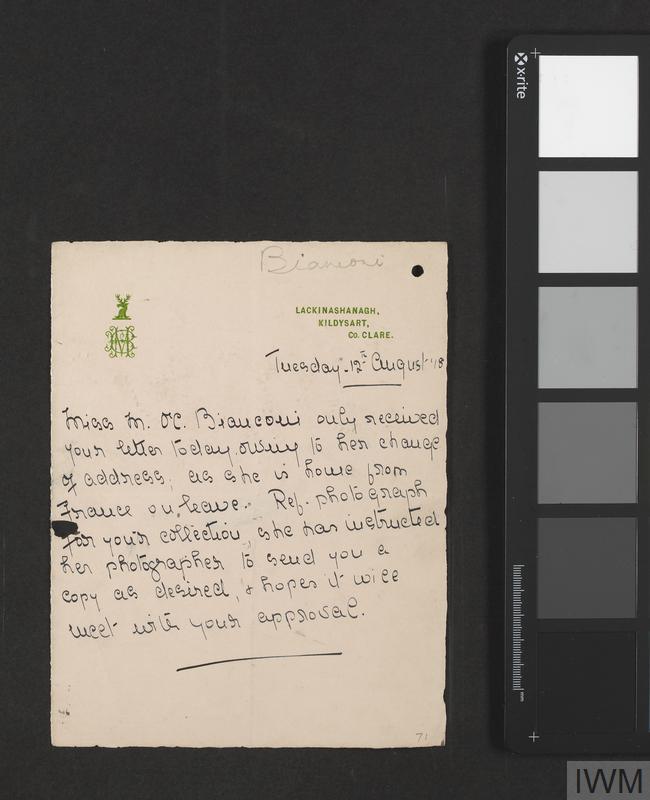 Bianconi
LACKINASHANAGH,
KILDYSART,
Co. CLARE.
Tuesday. 12th August '18
Miss M. O'C. Bianconi only received
your letter today, owing to her change
of address, as she is home from
France on leave. Ref. photograph
for your collection, she has instructed
her photographer to send you a
copy as desired, & hopes it will
meet with your approval.
71
x-rite
mm
IWM